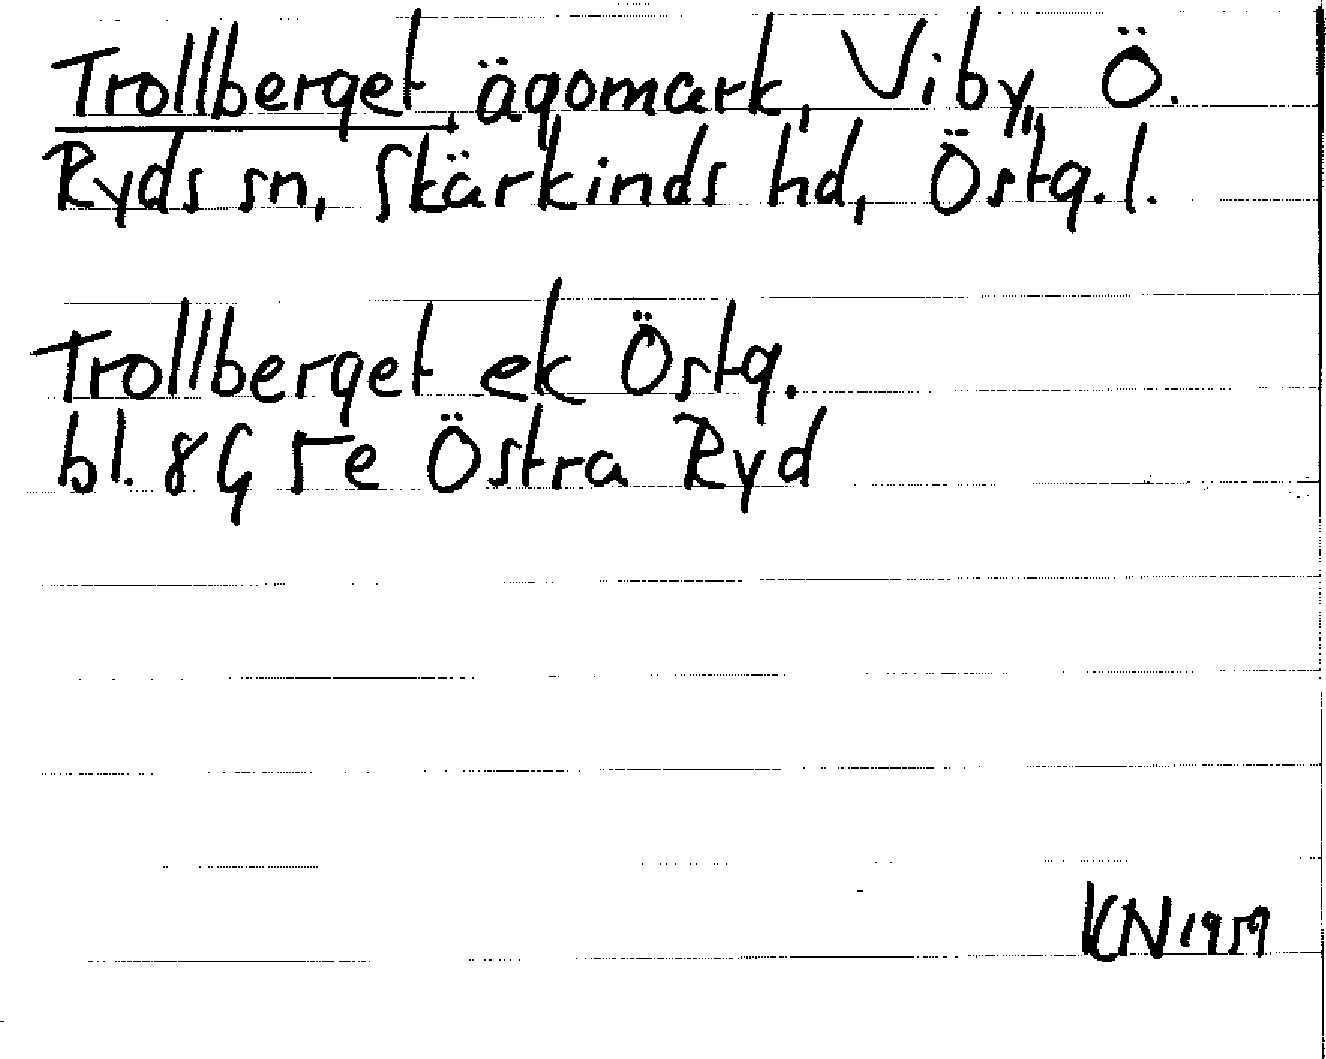 Trollberget, ägomark, Viby, Ö.
Ryds sn, Skärkinds hd, Östg.l.
Trollberget ek Östg.
bl. 8G 5e Östra Ryd
KN 1959